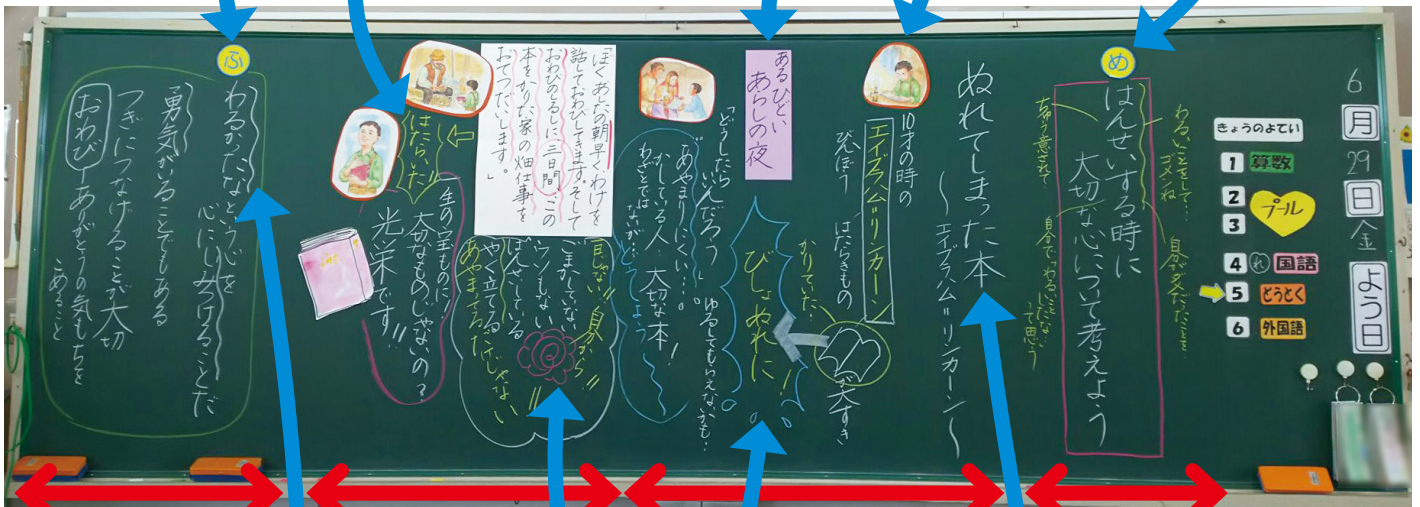 6
月
29
日
金
よう日
きょうのよてい
1 算数
2
3
プール
4 れ 国語
5 どうとく
6 外国語
め
はんせいする時に
大切な心について考えよう
わるいことをして…
ゴメンね
ちがう意きで
ぬれてしまった本
〜エイブラハム=リンカーン〜
10才の時の
エイブラハム=リンカーン
びんぼう
はたらきもの
本が大すき
かりていた
あるひどい
あらしの夜
びしょぬれに!
「どうしたら
いいんだろう」
ゆるしてもらえないかも…
あやまりにくい…。
かしている人
大切な本!
わざとでは
ないが…どうしよう
「ぼくあしたの朝早くわけを
話しておわびしてきます。そして
おわびのしるしに、三日間、この
本をかりた家の畑仕事を
おてつだいします。」
言いない。自分から!!
ごまかしてない
ウソもない
はんせいしている
やく立てる
あやまってるだけじゃない
はたらいた
一生の宝ものに
大切なものめじゃないの?
光栄です!!
ふ
わるかったなという心を
心にしみつけることだ
勇気がいることでもある
つぎにつなげることが大切
おわび
ありがとうの気もちを
こめること